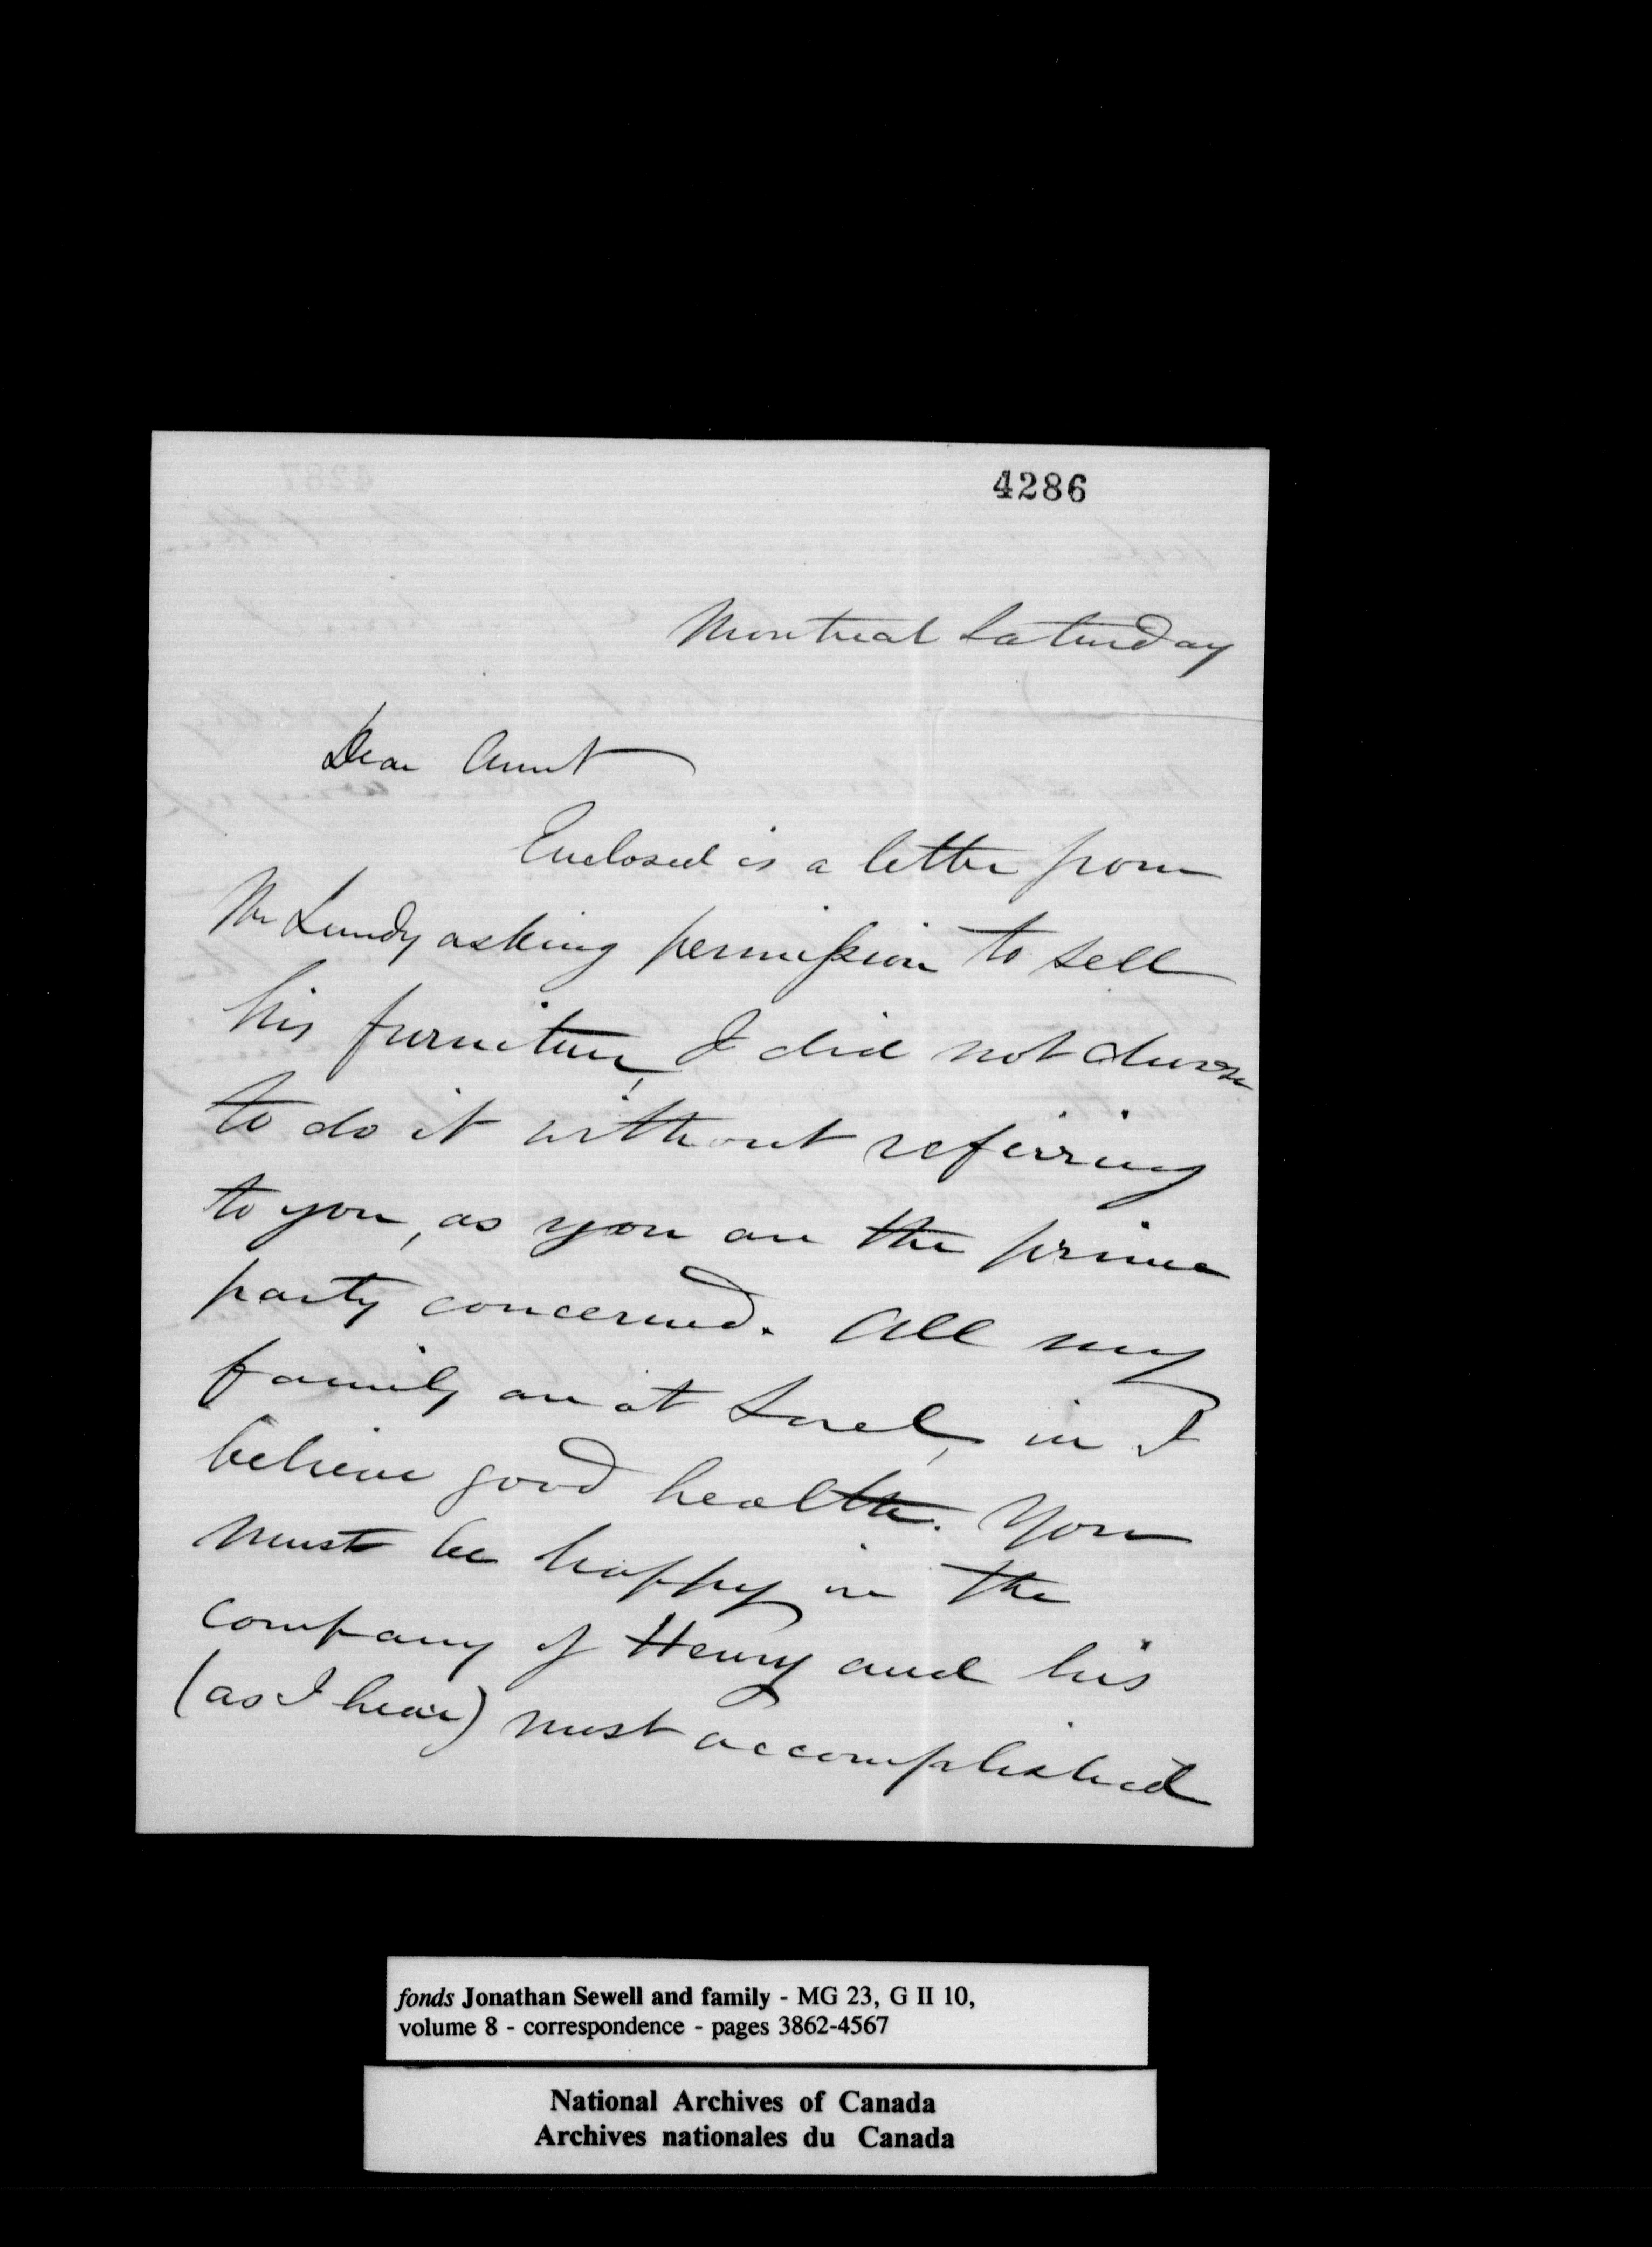 4286
Montreal Saturday
Dear Aunt
Enclosed is a letter from
Mr Lundy asking permission to sell
his furniture, I did not choose
to do it without referring
to you, as you are the prime
party concerned. All my
family are at Sorel, in I
believe good health. You
must be happy in the
company of Henry and his
(as I hear) most accomplished
fonds Jonathan Sewell and family - MG 23, G II 10,
volume 8 - correspondence - pages 3862-4567
National Archives of Canada
Archives nationales du Canada